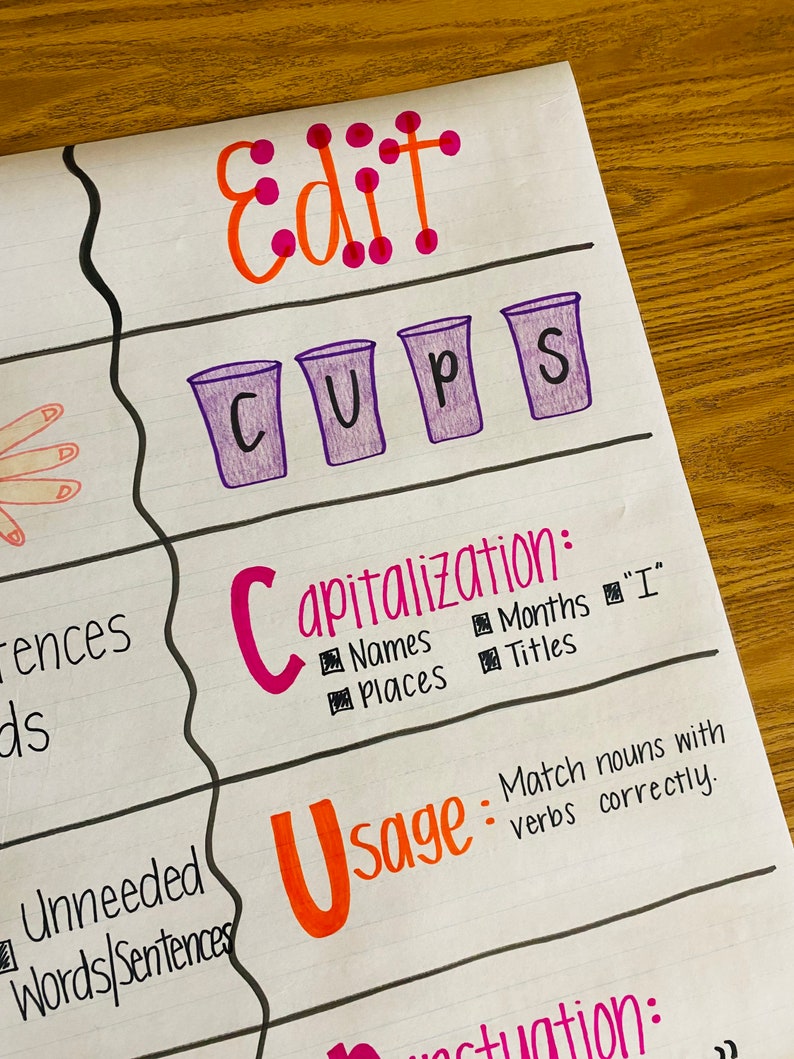 Edit
C U P S
Capitalization:
Names Months "I"
Places Titles
Usage: Match nouns with
verbs correctly.
ds
Unneeded
Words/Sentences